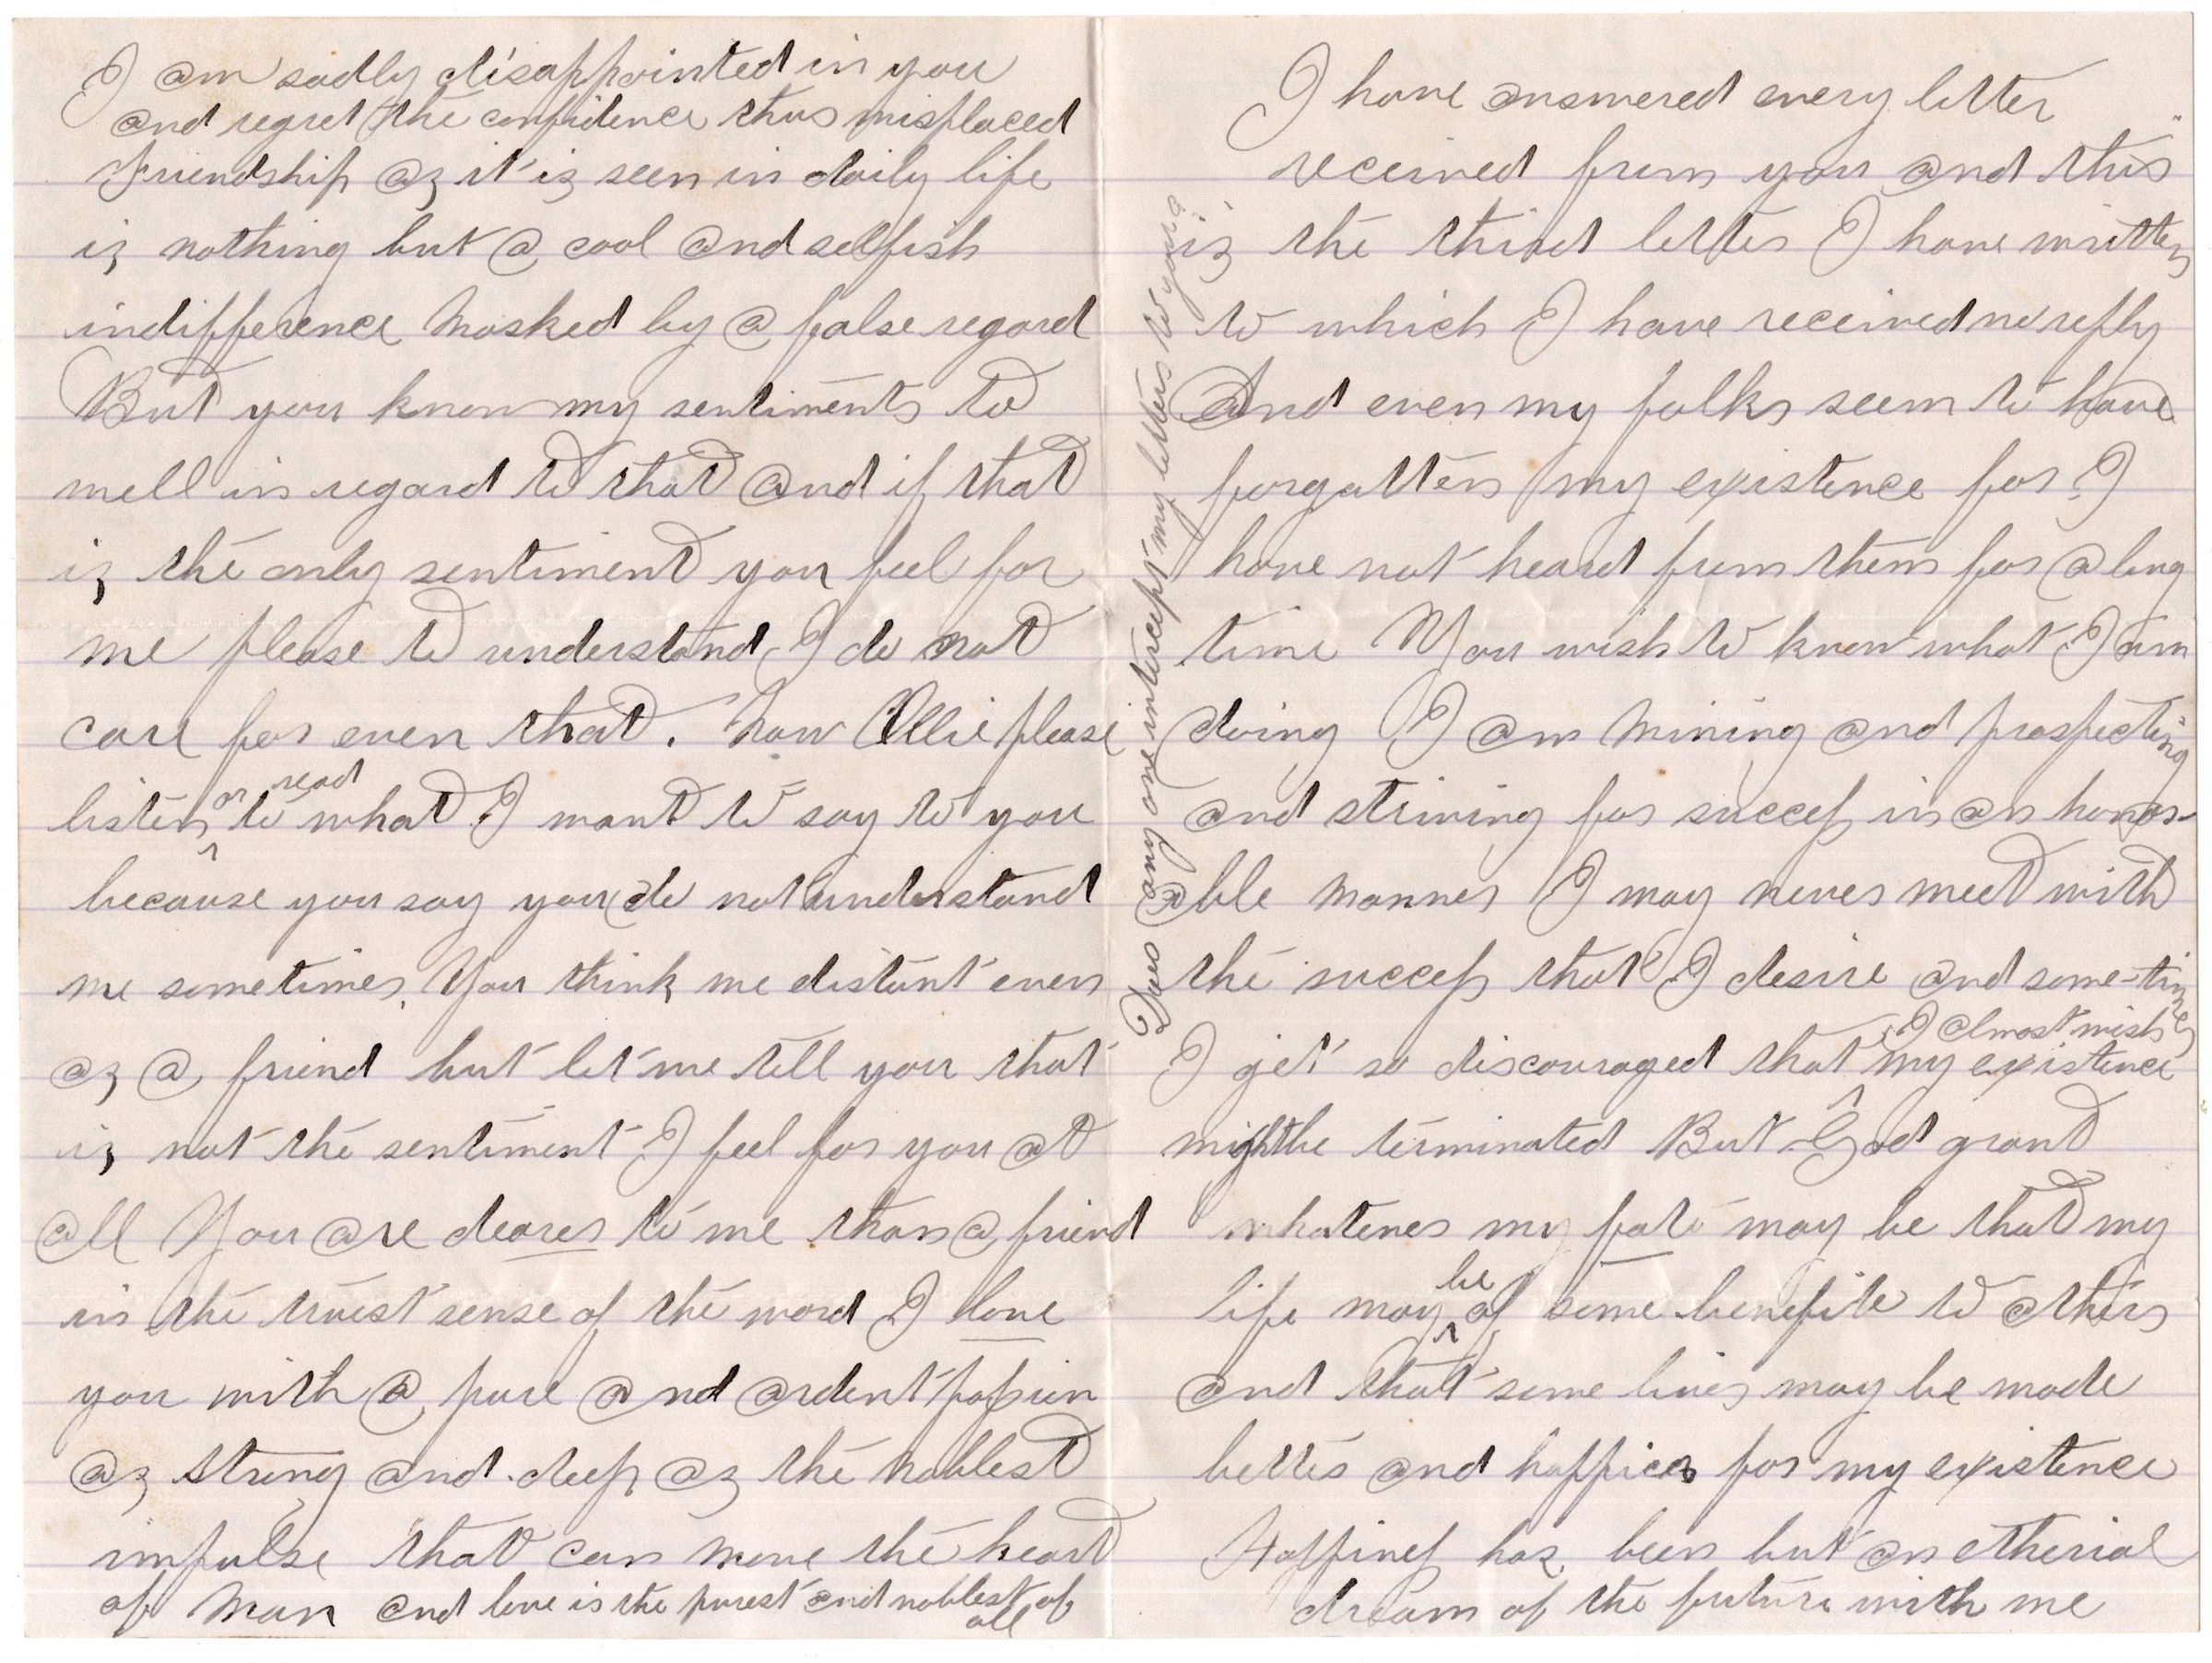 I am sadly disappointed in you
and regret the confidence thus misplaced
Friendship as it is seen in daily life
is nothing but a cool and selfish
indifference masked by a false regard
But you know my sentiments to
well in regard to that and if that
is the only sentiment you feel for
me please to understand I do not
care for even that. Now Ollie please
listen or read to what I want to say to you
because you say you do not understand
me sometimes. You think me distant even
as a friend but let me tell you that
is not the sentiment I feel for you at
all You are dearer to me than a friend
in the truest sense of the word I love
you with a pure and ardent passion
as strong and deep as the noblest
impulse that can move the heart
of man and love is the purest and noblest of
all
I have answered every letter
received from you and this
is the third letter I have written
to which I have received no reply
And even my folks seem to have
forgotten my existence for I
have not heard from them for a long
time You wish to know what I am
doing I am mining and prospecting
and striving for success in an honor-
able manner I may never meet with
the success that I desire and some-times
I get so discouraged that I almost wish my existence
might be terminated But God grant
whatever my fate may be that my
life may be of some benefite to others
and that some lives may be made
better and happier for my existence
Happiness has been but an etherial
dream of the future with me
Does any one intercept my letters to you?